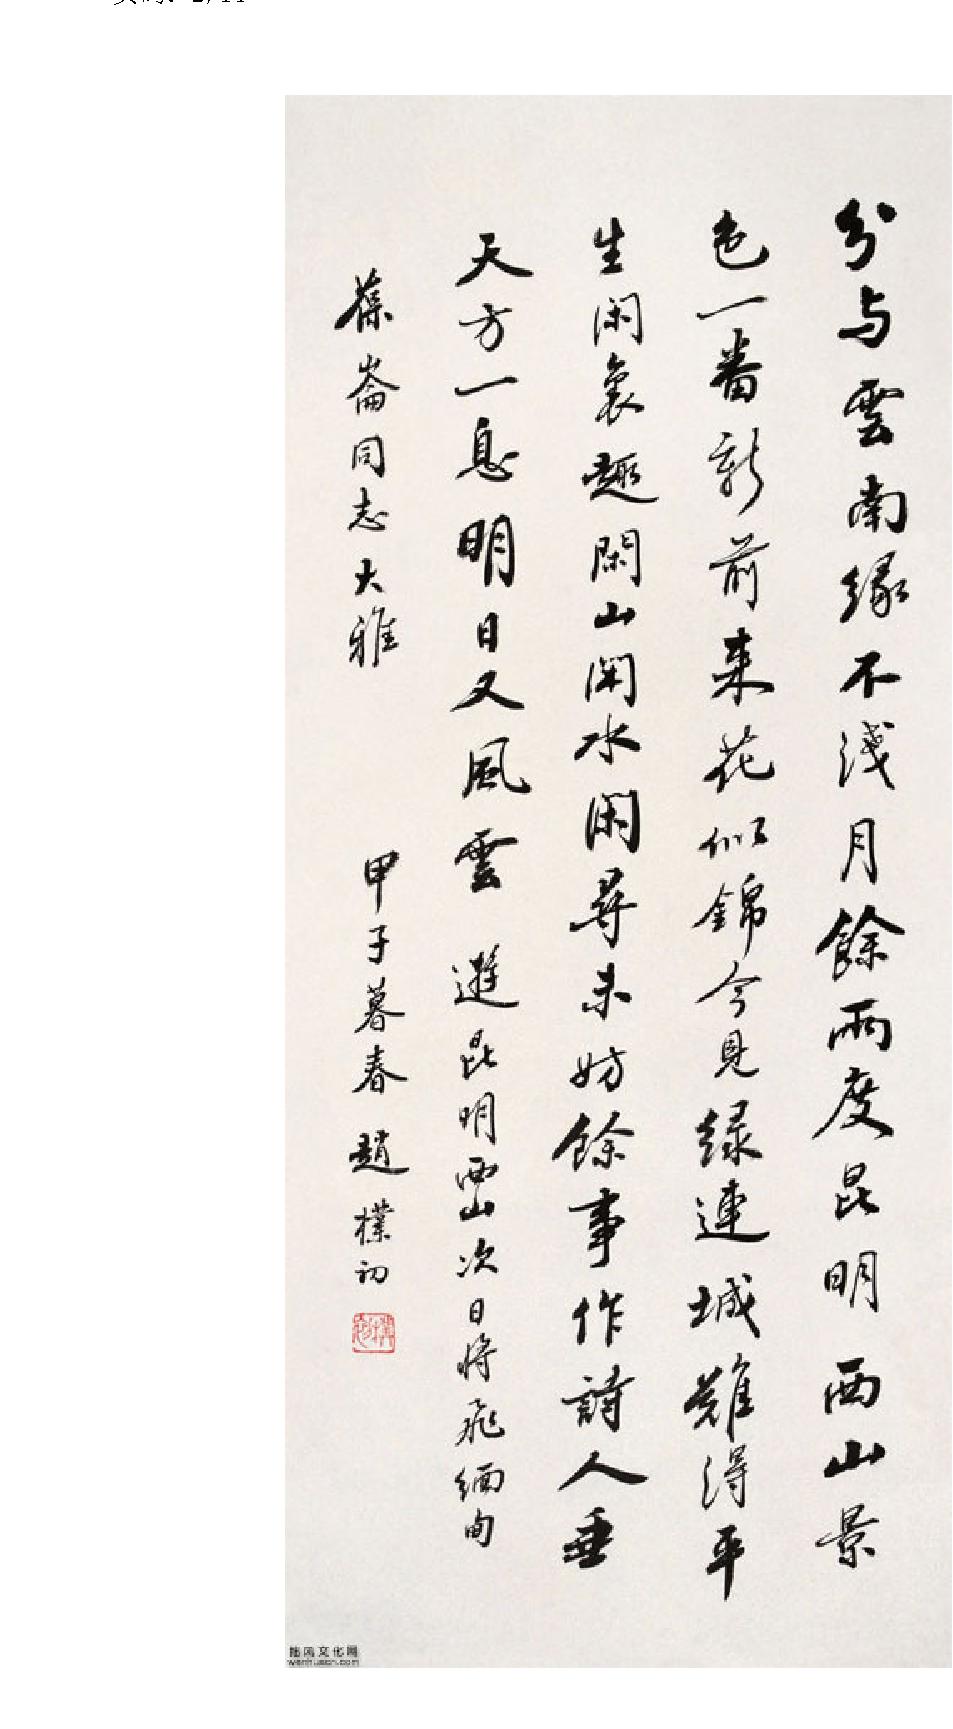 分与雲南緣不淺月餘兩度昆明西山景
色一番新前来花似錦今見緑連城難得平
生閑裏趣閑山閑水閑尋未妨餘事作詩人垂
天方一息明日又風雲 遊昆明西山次日将飛緬甸
葆崙同志大雅 甲子暮春 趙樸初